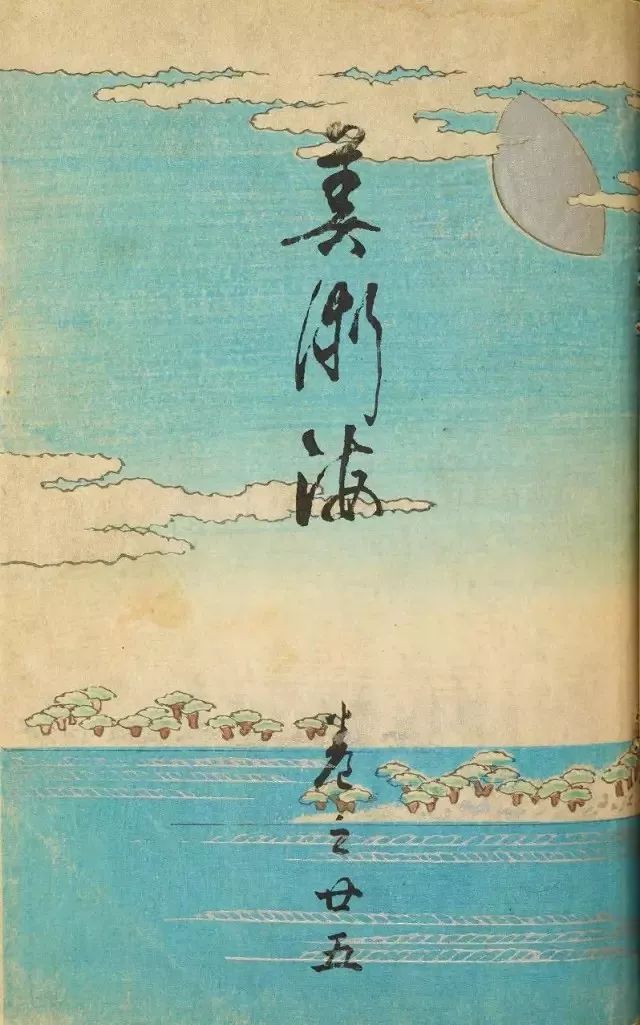 美術海
巻之廿五